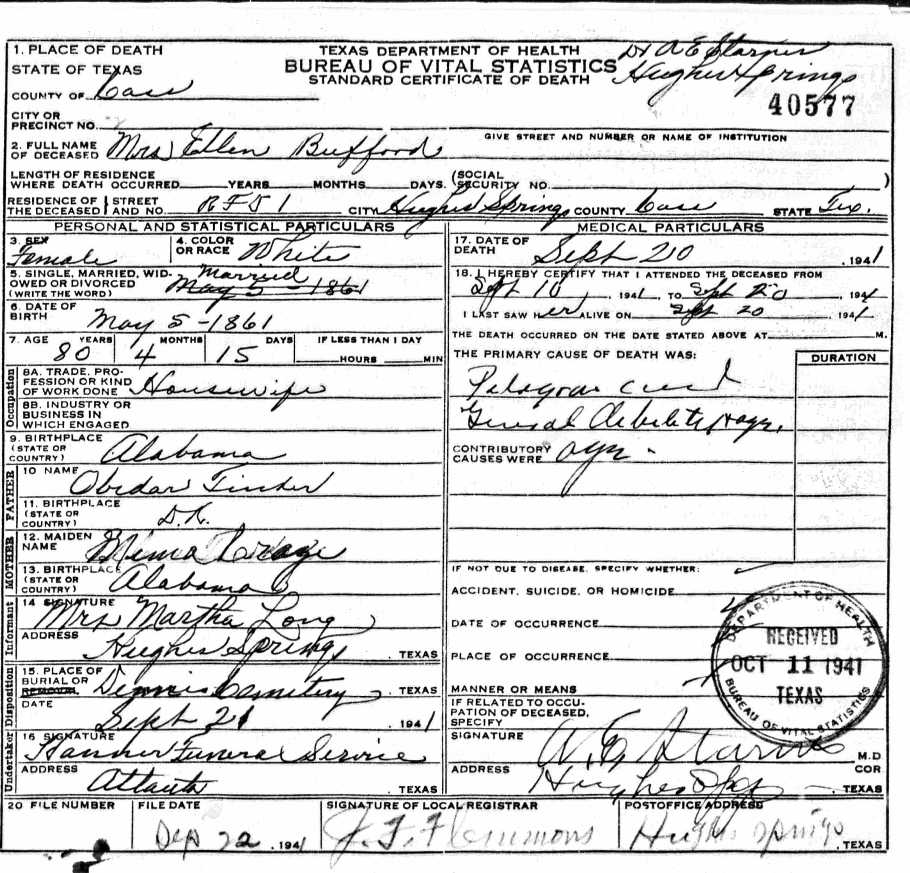 1. PLACE OF DEATH
STATE OF TEXAS
COUNTY OF Cass
TEXAS DEPARTMENT OF HEALTH
BUREAU OF VITAL STATISTICS
STANDARD CERTIFICATE OF DEATH
Dr A E Starnes
Hughes Springs
40577
CITY OR
PRECINCT NO.
GIVE STREET AND NUMBER OR NAME OF INSTITUTION
2. FULL NAME
OF DECEASED Mrs Ellen Bufford
LENGTH OF RESIDENCE
WHERE DEATH OCCURRED YEARS MONTHS DAYS. (SOCIAL
SECURITY NO. )
RESIDENCE OF STREET
THE DECEASED AND NO. RFD 1 CITY Hughes Springs COUNTY Cass STATE Tex.
PERSONAL AND STATISTICAL PARTICULARS
3. SEX
Female
4. COLOR
OR RACE White
5. SINGLE, MARRIED, WID-
OWED OR DIVORCED
(WRITE THE WORD)
Married
May 5 - 1861
6. DATE OF
BIRTH May 5 - 1861
7. AGE YEARS MONTHS DAYS IF LESS THAN 1 DAY
80 4 15 HOURS MIN
Occupation
8A. TRADE, PRO-
FESSION OR KIND
OF WORK DONE Housewife
8B. INDUSTRY OR
BUSINESS IN
WHICH ENGAGED
9. BIRTHPLACE
(STATE OR
COUNTRY) Alabama
FATHER
10 NAME
11. BIRTHPLACE
(STATE OR
COUNTRY) D.K.
MOTHER
12. MAIDEN
NAME
13. BIRTHPLACE
(STATE OR
COUNTRY) Alabama
Informant
14 SIGNATURE
Mrs Martha Long
ADDRESS
Hughes Springs, TEXAS
Undertaker Disposition
15. PLACE OF
BURIAL OR
REMOVAL Dennis Cemetery, TEXAS
DATE
Sept 21 194 1
16 SIGNATURE
Hanner Funeral Service
ADDRESS
Atlanta, TEXAS
MEDICAL PARTICULARS
17. DATE OF
DEATH Sept 20 , 194 1
18. I HEREBY CERTIFY THAT I ATTENDED THE DECEASED FROM
Sept 10 , 194 1, TO Sept 20 , 194 1
I LAST SAW H er ALIVE ON Sept 20 194 1
THE DEATH OCCURRED ON THE DATE STATED ABOVE AT M.
THE PRIMARY CAUSE OF DEATH WAS:
DURATION
General debility
CONTRIBUTORY
CAUSES WERE
IF NOT DUE TO DISEASE, SPECIFY WHETHER:
ACCIDENT, SUICIDE, OR HOMICIDE
DATE OF OCCURRENCE
PLACE OF OCCURRENCE
MANNER OR MEANS
IF RELATED TO OCCU-
PATION OF DECEASED,
SPECIFY
DEPARTMENT OF HEALTH
RECEIVED
OCT 11 1941
TEXAS
BUREAU OF VITAL STATISTICS
SIGNATURE A. E. Starnes M.D
COR
ADDRESS Hughes Spgs TEXAS
20 FILE NUMBER
FILE DATE
Sep 22 , 194 1
SIGNATURE OF LOCAL REGISTRAR
J. F. Flemmons
POSTOFFICE ADDRESS
Hughes Springs TEXAS